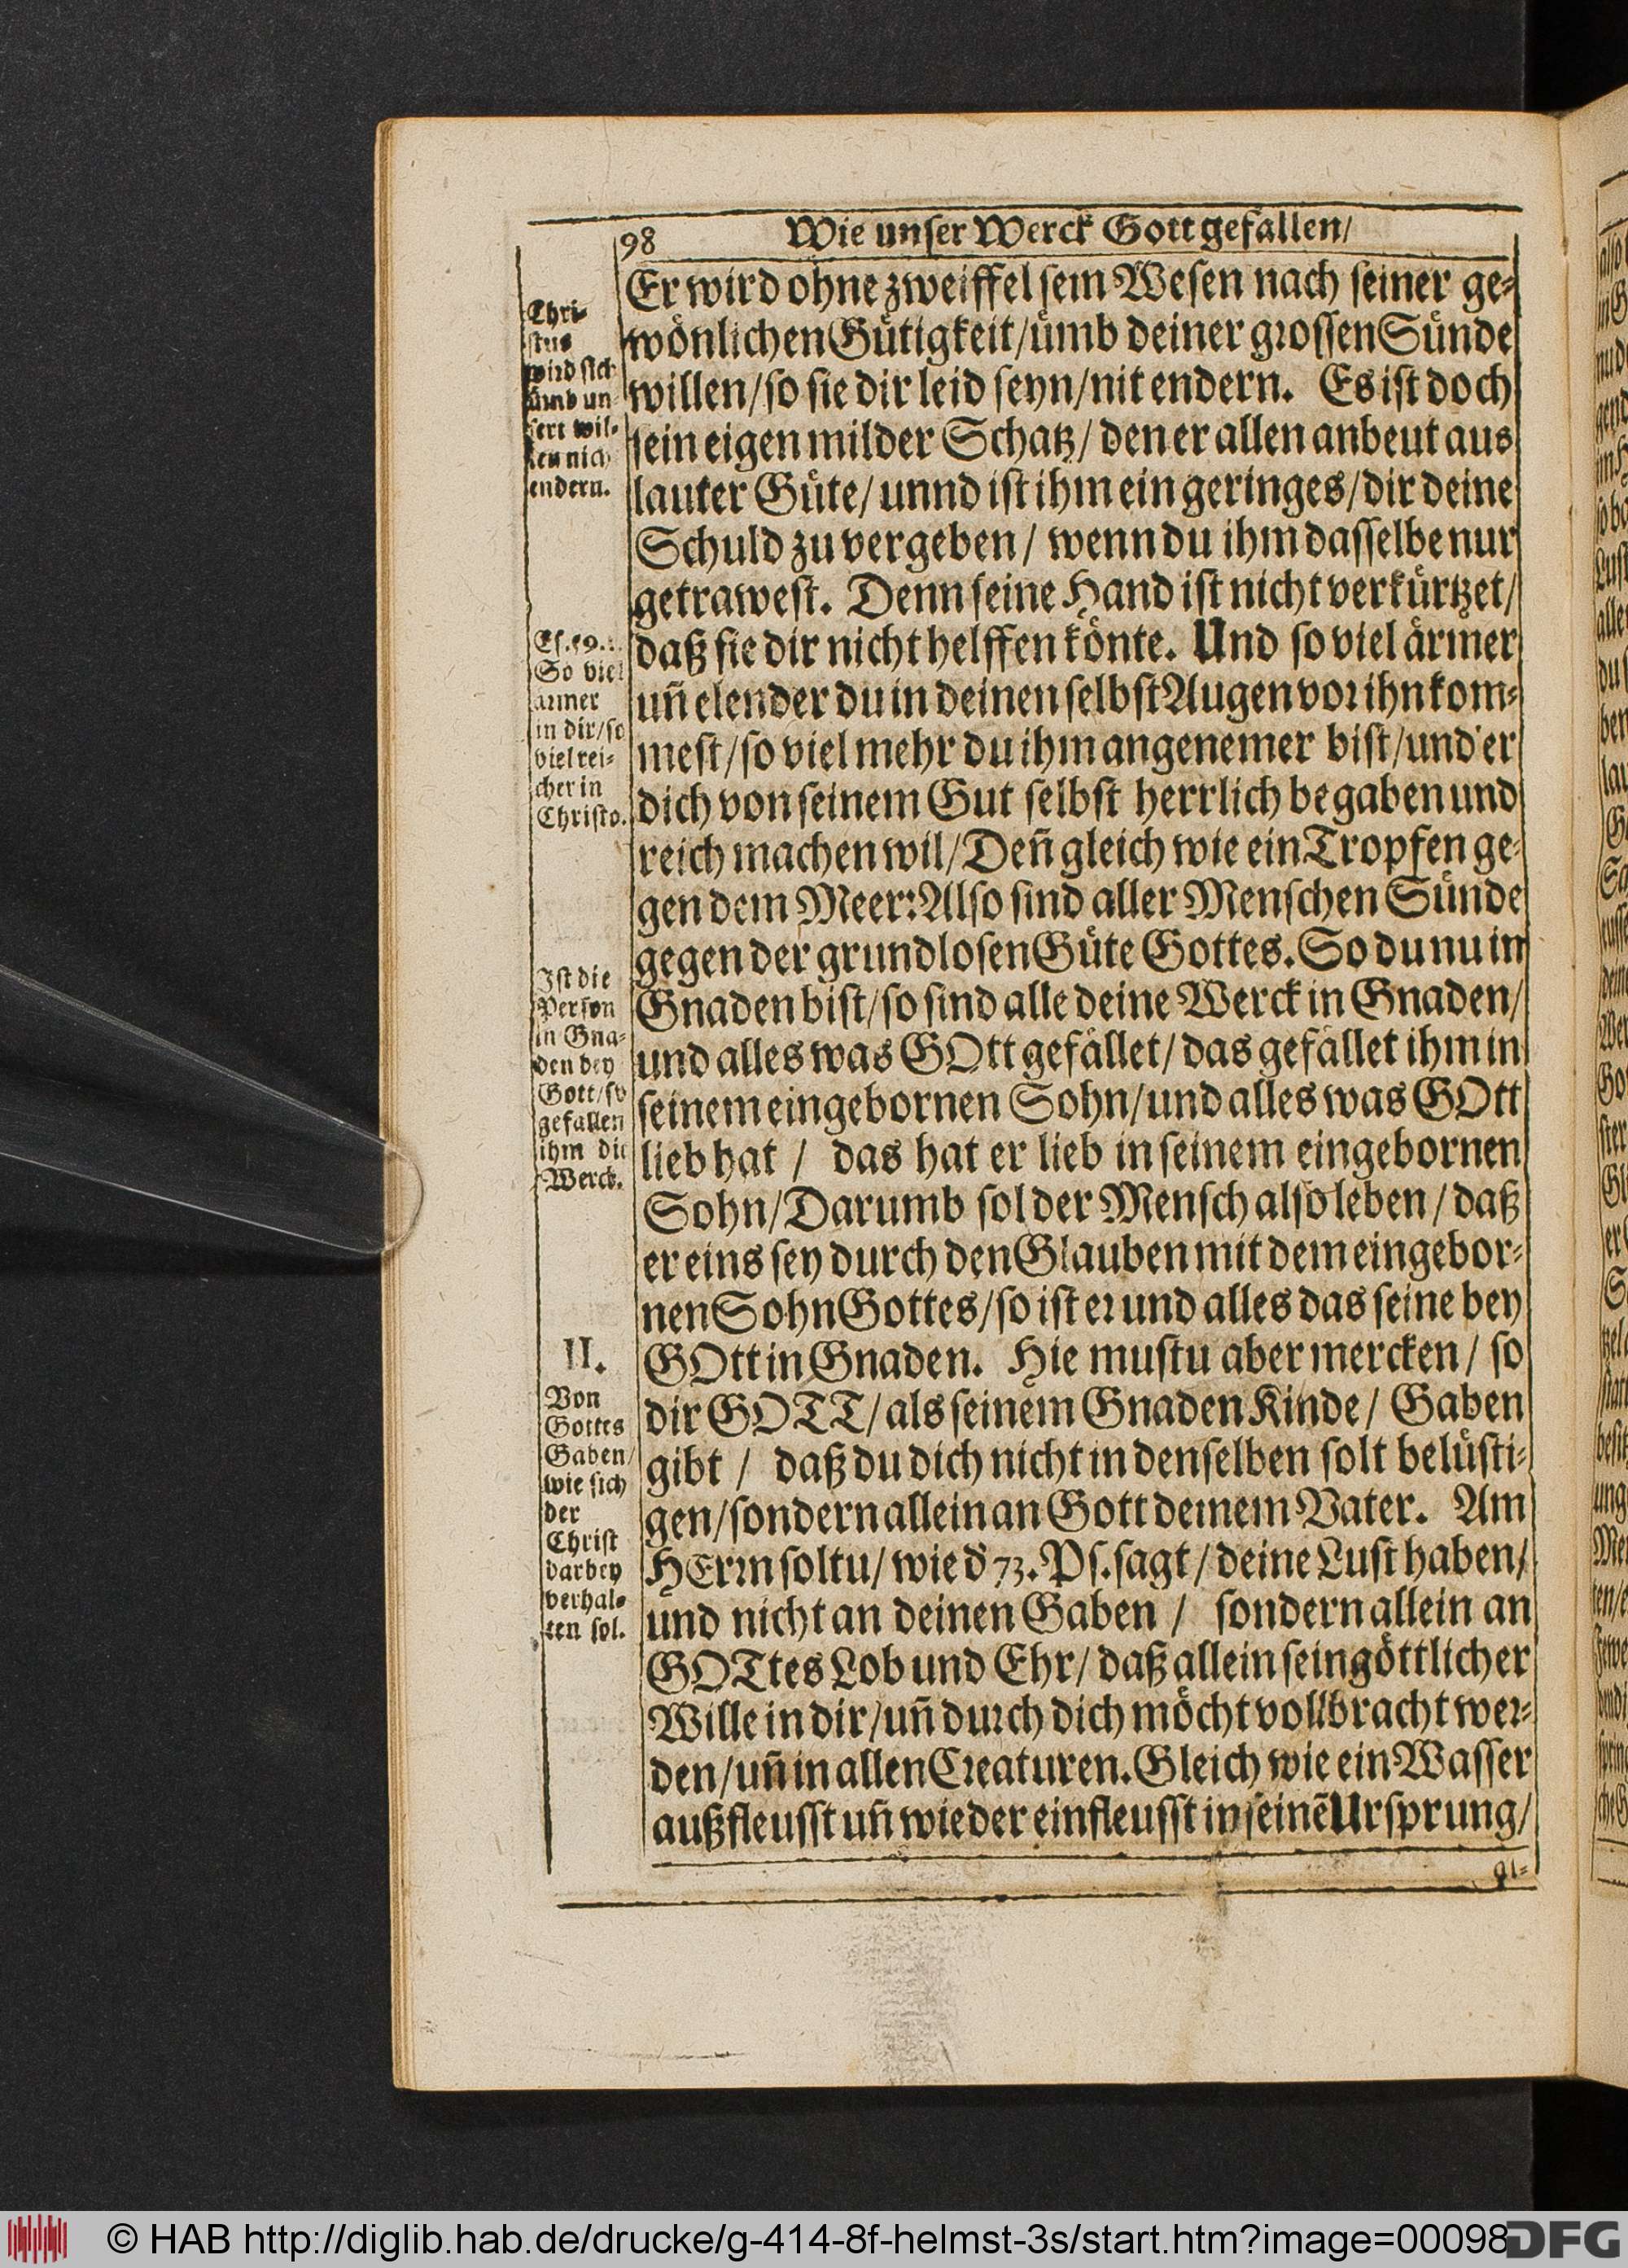 98 Wie unser Werck Gott gefallen/
Er wird ohne zweiffel sein Wesen nach seiner ge-
wönlichen Gütigkeit/ümb deiner grossen Sünde
willen/so sie dir leid seyn/nit endern. Es ist doch
sein eigen milder Schatz/ den er allen anbeut aus
lauter Güte/ unnd ist ihm ein geringes/dir deine
Schuld zu vergeben/ wenn du ihm dasselbe nur
getrawest. Denn seine Hand ist nicht verkürtzet/
daß sie dir nicht helffen könte. Und so viel ärmer
uñ elender du in deinen selbst Augen vor ihn kom-
mest/so viel mehr du ihm angenemer bist/und er
dich von seinem Gut selbst herrlich begaben und
reich machen wil/Deñ gleich wie ein Tropfen ge-
gen dem Meer: Also sind aller Menschen Sünde
gegen der grundlosen Güte Gottes. So du nu in
Gnaden bist/so sind alle deine Werck in Gnaden/
und alles was GOtt gefället/ das gefället ihm in
seinem eingebornen Sohn/und alles was GOtt
lieb hat / das hat er lieb in seinem eingebornen
Sohn/Darumb sol der Mensch also leben/ daß
er eins sey durch den Glauben mit dem eingebor-
nen Sohn Gottes/so ist er und alles das seine bey
GOtt in Gnaden. Hie mustu aber mercken/ so
dir GOTT/als seinem Gnaden Kinde/ Gaben
gibt / daß du dich nicht in denselben solt belüsti-
gen/sondern allein an Gott deinem Vater. Am
HErrn soltu/ wie d' 73. Ps. sagt/deine Lust haben/
und nicht an deinen Gaben / sondern allein an
GOTtes Lob und Ehr/ daß allein sein göttlicher
Wille in dir/uñ durch dich möcht vollbracht wer-
den/uñ in allen Creaturen. Gleich wie ein Wasser
außfleusst uñ wieder einfleusst in seinẽ Ursprung/
Chri-
stus
wird sich
ümb un-
sert wil-
len nich
endern.
Es. 59.
So viel
ärmer
in dir/so
viel rei-
cher in
Christo.
Ist die
Person
in Gna-
den bey
Gott/so
gefallen
ihm die
Werck.
II.
Von
Gottes
Gaben/
wie sich
der
Christ
darbey
verhal-
ten sol.
© HAB http://diglib.hab.de/drucke/g-414-8f-helmst-3s/start.htm?image=00098
DFG